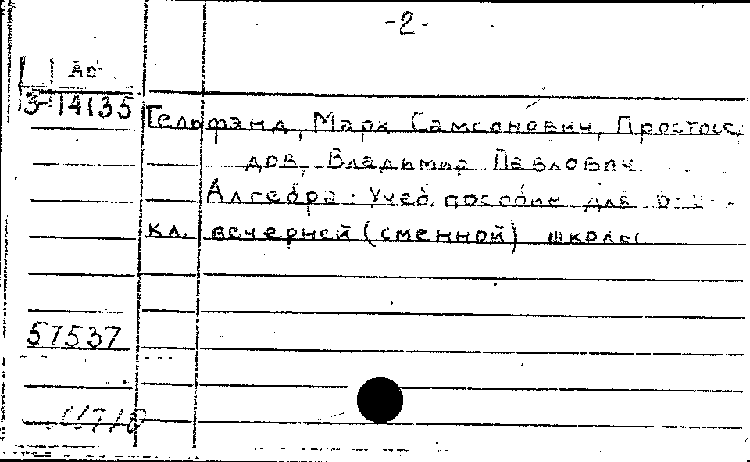 -2-
Ad
3-14135
Гельфанд, Марк Самсонович, Простосе
дов, Владимир Павлович
Алгебра. Учеб. пособие для
кл. вечерней (сменной) школы
57537